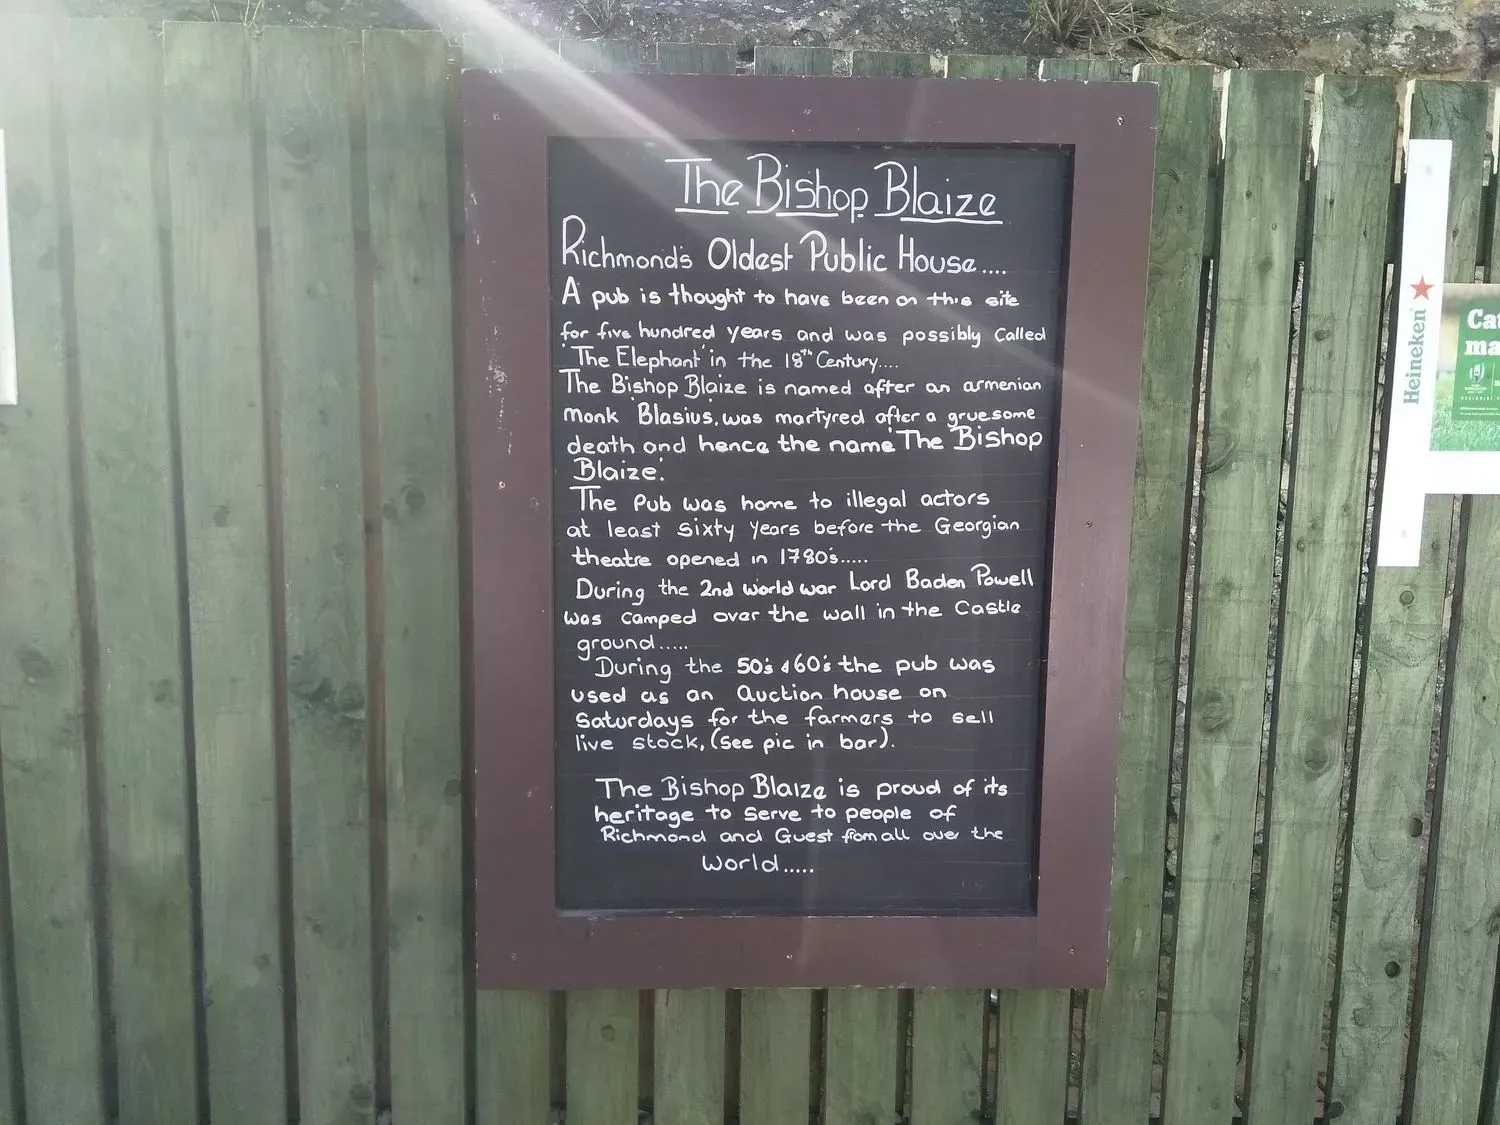 The Bishop Blaize
Richmond's Oldest Public House....
A pub is thought to have been on this site
for five hundred years and was possibly called
'The Elephant' in the 18th Century....
The Bishop Blaize is named after an armenian
monk 'Blasius', was martyred after a gruesome
death and hence the name 'The Bishop
Blaize'.
The Pub was home to illegal actors
at least sixty years before the Georgian
theatre opened in 1780's.....
During the 2nd world war Lord Baden Powell
was camped over the wall in the Castle
ground.....
During the 50's & 60's the pub was
used as an auction house on
Saturdays for the farmers to sell
live stock, (see pic in bar).
The Bishop Blaize is proud of its
heritage to serve to people of
Richmond and Guest from all over the
World.....
Heineken
Cat
ma